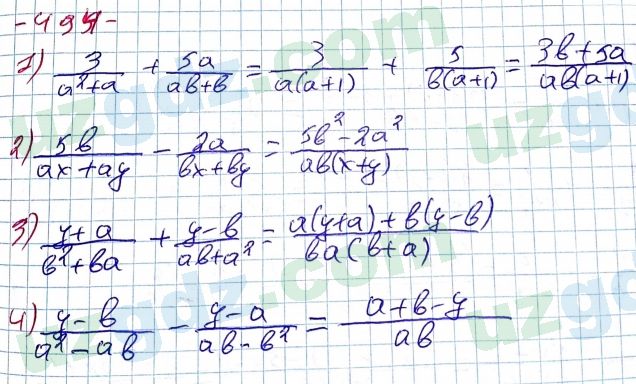 -494-
1) 3/(a²+a) + 5a/(ab+b) = 3/(a(a+1)) + 5/(b(a+1)) = (3b+5a)/(ab(a+1))
2) 5b/(ax+ay) - 2a/(bx+by) = (5b²-2a²)/(ab(x+y))
3) (y+a)/(b²+ba) + (y-b)/(ab+a²) = (a(y+a)+b(y-b))/(ba(b+a))
4) (y-b)/(a²-ab) - (y-a)/(ab-b²) = (a+b-y)/(ab)
uzgdz.com
uzgdz.com
uzgdz.com